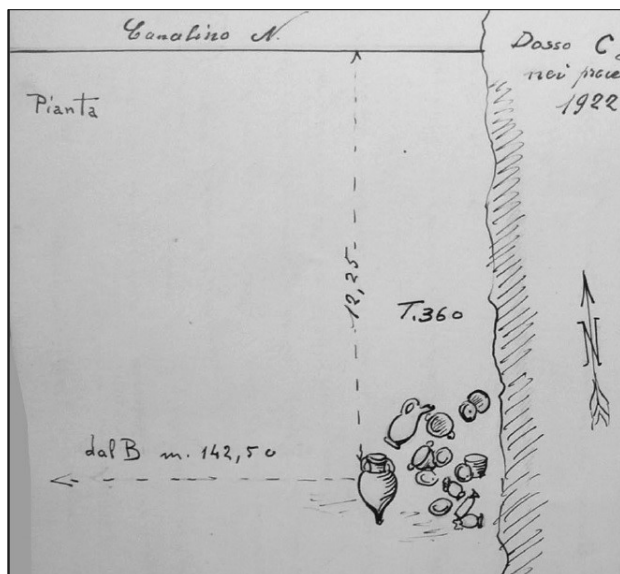 Canalino N.
Dosso C
nei
1922
Pianta
12,25
T.360
N
dal B m. 142,50